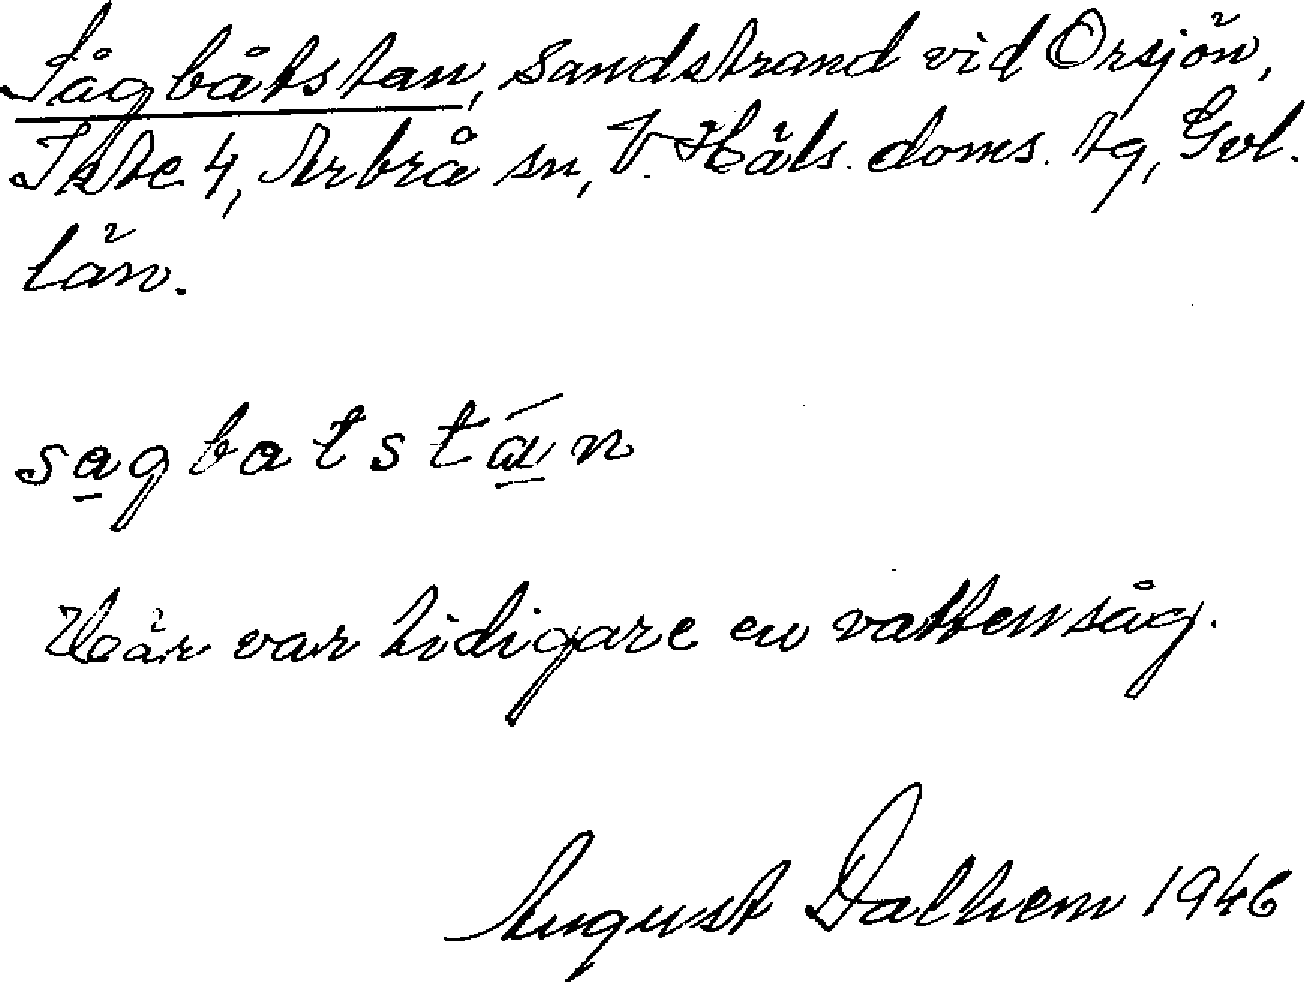 Sågbåtstan, sandstrand vid Orsjön,
Ikte 4, Arbrå sn, V. Häls. doms. tg, Gvl.
län.
sagbatstán
Här var tidigare en vattensåg.
August Dalhem 1946